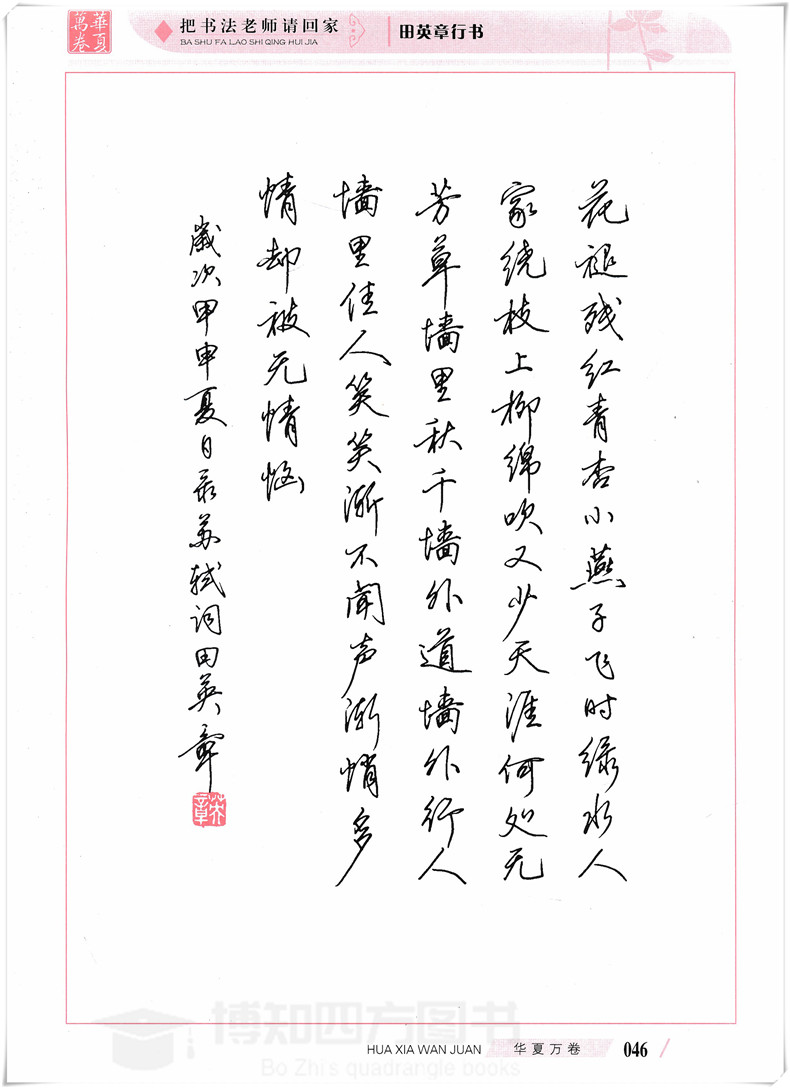 華夏萬卷
把书法老师请回家
BA SHU FA LAO SHI QING HUI JIA
田英章行书
花褪残红青杏小燕子飞时绿水人
家绕枝上柳绵吹又少天涯何处无
芳草墙里秋千墙外道墙外行人
墙里佳人笑笑渐不闻声渐悄多
情却被无情恼
歲次甲申夏日录苏轼词田英章
英章
博知四方图书
Bo Zhi's quadrangle books
HUA XIA WAN JUAN
华夏万卷
046